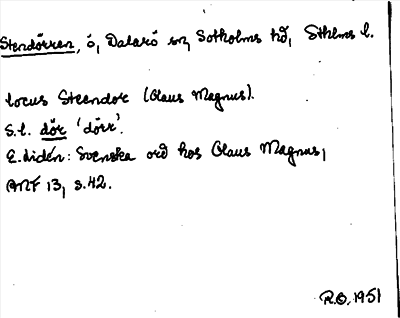 Stendörren, ö, Dalarö sn, Sotholms hd, Sthlms l.
locus Steendor (Olaus Magnus).
S.l. dör 'dörr'.
E. Lidén: Svenska ord hos Olaus Magnus,
ANF 13, s. 42.
R.O. 1951